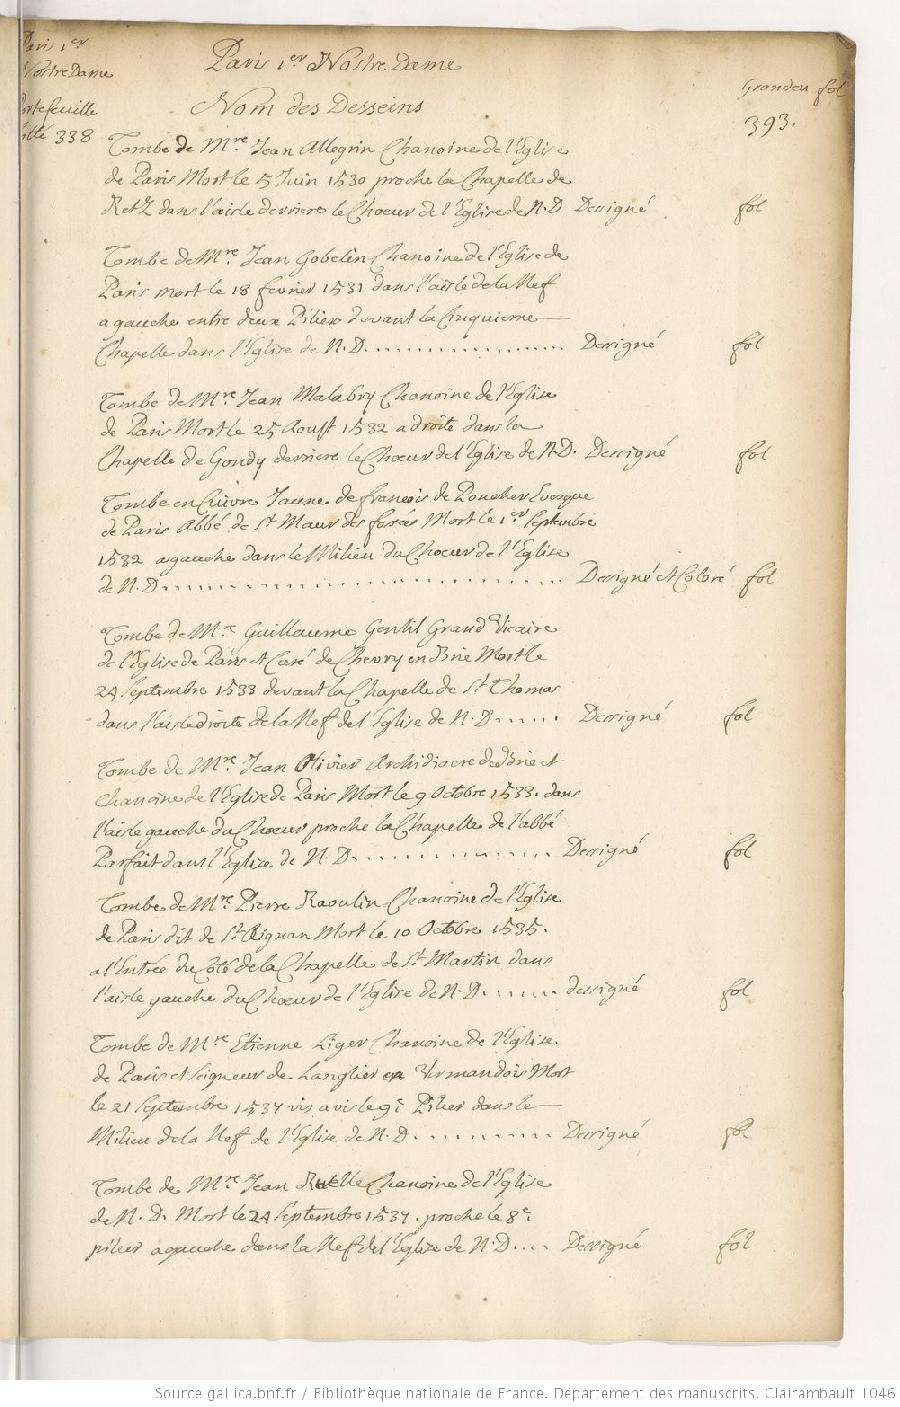 Paris 1er
Nostre Dame
Portefeuille
cotté 338
Paris 1er Nostre Dame
Nom des Desseins
Grandeu fol
393.
Tombe de Mre. Jean Allegrin Chanoine de l'Eglise
de Paris Mort le 5 Juin 1530 proche la Chapelle de
Retz dans l'aisle derriere le Choeur de l'Eglise de N.D Dessigné fol
Tombe de Mre. Jean Gobelin Chanoine de l'Eglise de
Paris mort le 18 fevrier 1531 dans l'aisle de la Nef
a gauche entre deux Piliers devant la Cinquieme
Chapelle dans l'Eglise de N.D. ................. Dessigné fol
Tombe de Mre. Jean Malabry Chanoine de l'Eglise
de Paris Mort le 25 Aoust 1532 a droite dans la
Chapelle de Gondy derriere le Choeur de l'Eglise de N.D. Dessigné fol
Tombe en Cuivre Jaune de françois de Poncher Evesque
de Paris Abbé de St Maur des fossés Mort le 1er Septembre
1532 a gauche dans le Milieu du Choeur de l'Eglise
de N.D............................. Dessigné et Coloré fol
Tombe de Mre Guillaume Gentil Grand Vicaire
de l'Eglise de Paris et Curé de Chevry en Brie Mort le
24 Septembre 1533 devant la Chapelle de St Thomas
dans l'aisle droite de la Nef de l'Eglise de N.D...... Dessigné fol
Tombe de Mre. Jean Olivier Archidiacre de Brie et
Chanoine de l'Eglise de Paris Mort le 9 Octobre 1533. dans
l'aisle gauche du Choeur proche la Chapelle de l'abbé
Parfait dans l'Eglise de N.D............... Dessigné fol
Tombe de Mre. Pierre Raoulin Chanoine de l'Eglise
de Paris dit de St Aignan Mort le 10 Octobre 1535.
a l'Entrée du Coté de la Chapelle de St Martin dans
l'aisle gauche du Choeur de l'Eglise de N.D....... dessigné fol
Tombe de Mre Etienne Liger Chanoine de l'Eglise
de Paris et Seigneur de Langlier en Vermandois Mort
le 21 Septembre 1537 vis a vis le 9e Pilier dans le
Milieu de la Nef de l'Eglise de N.D........... Dessigné fol
Tombe de Mre. Jean Ruelle Chanoine de l'Eglise
de N.D. Mort le 24 Septembre 1537. proche le 8e.
pilier a gauche dans la Nef de l'Eglise de N.D.... Dessigné fol
Source gallica.bnf.fr / Bibliothèque nationale de France. Département des manuscrits. Clairambault 1046